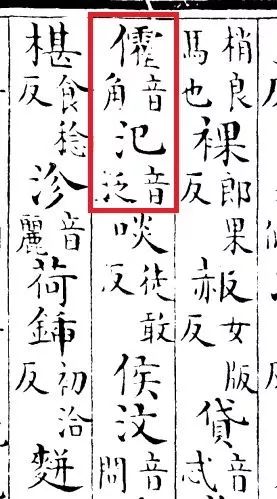 梢良馬也裸郎果反赧女版反貸音忒
音角氾音泛啖徒敢反侯汶音問
椹食稔反沴音麗荷鍤初洽反